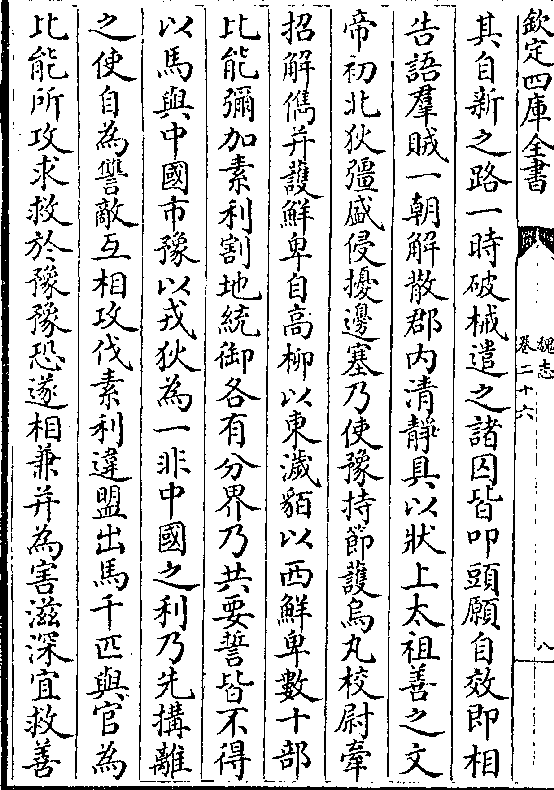 欽定四庫全書
魏志
卷二十六
八
其自新之路一時破械遣之諸囚皆叩頭願自效即相
告語羣賊一朝解散郡内清靜具以狀上太祖善之文
帝初北狄彊盛侵擾邊塞乃使豫持節護烏丸校尉牽
招解儁并護鮮卑自高柳以東濊貊以西鮮卑數十部
比能彌加素利割地統御各有分界乃共要誓皆不得
以馬與中國市豫以戎狄為一非中國之利乃先搆離
之使自為讐敵互相攻伐素利違盟出馬千匹與官為
比能所攻求救於豫豫恐遂相兼并為害滋深宜救善